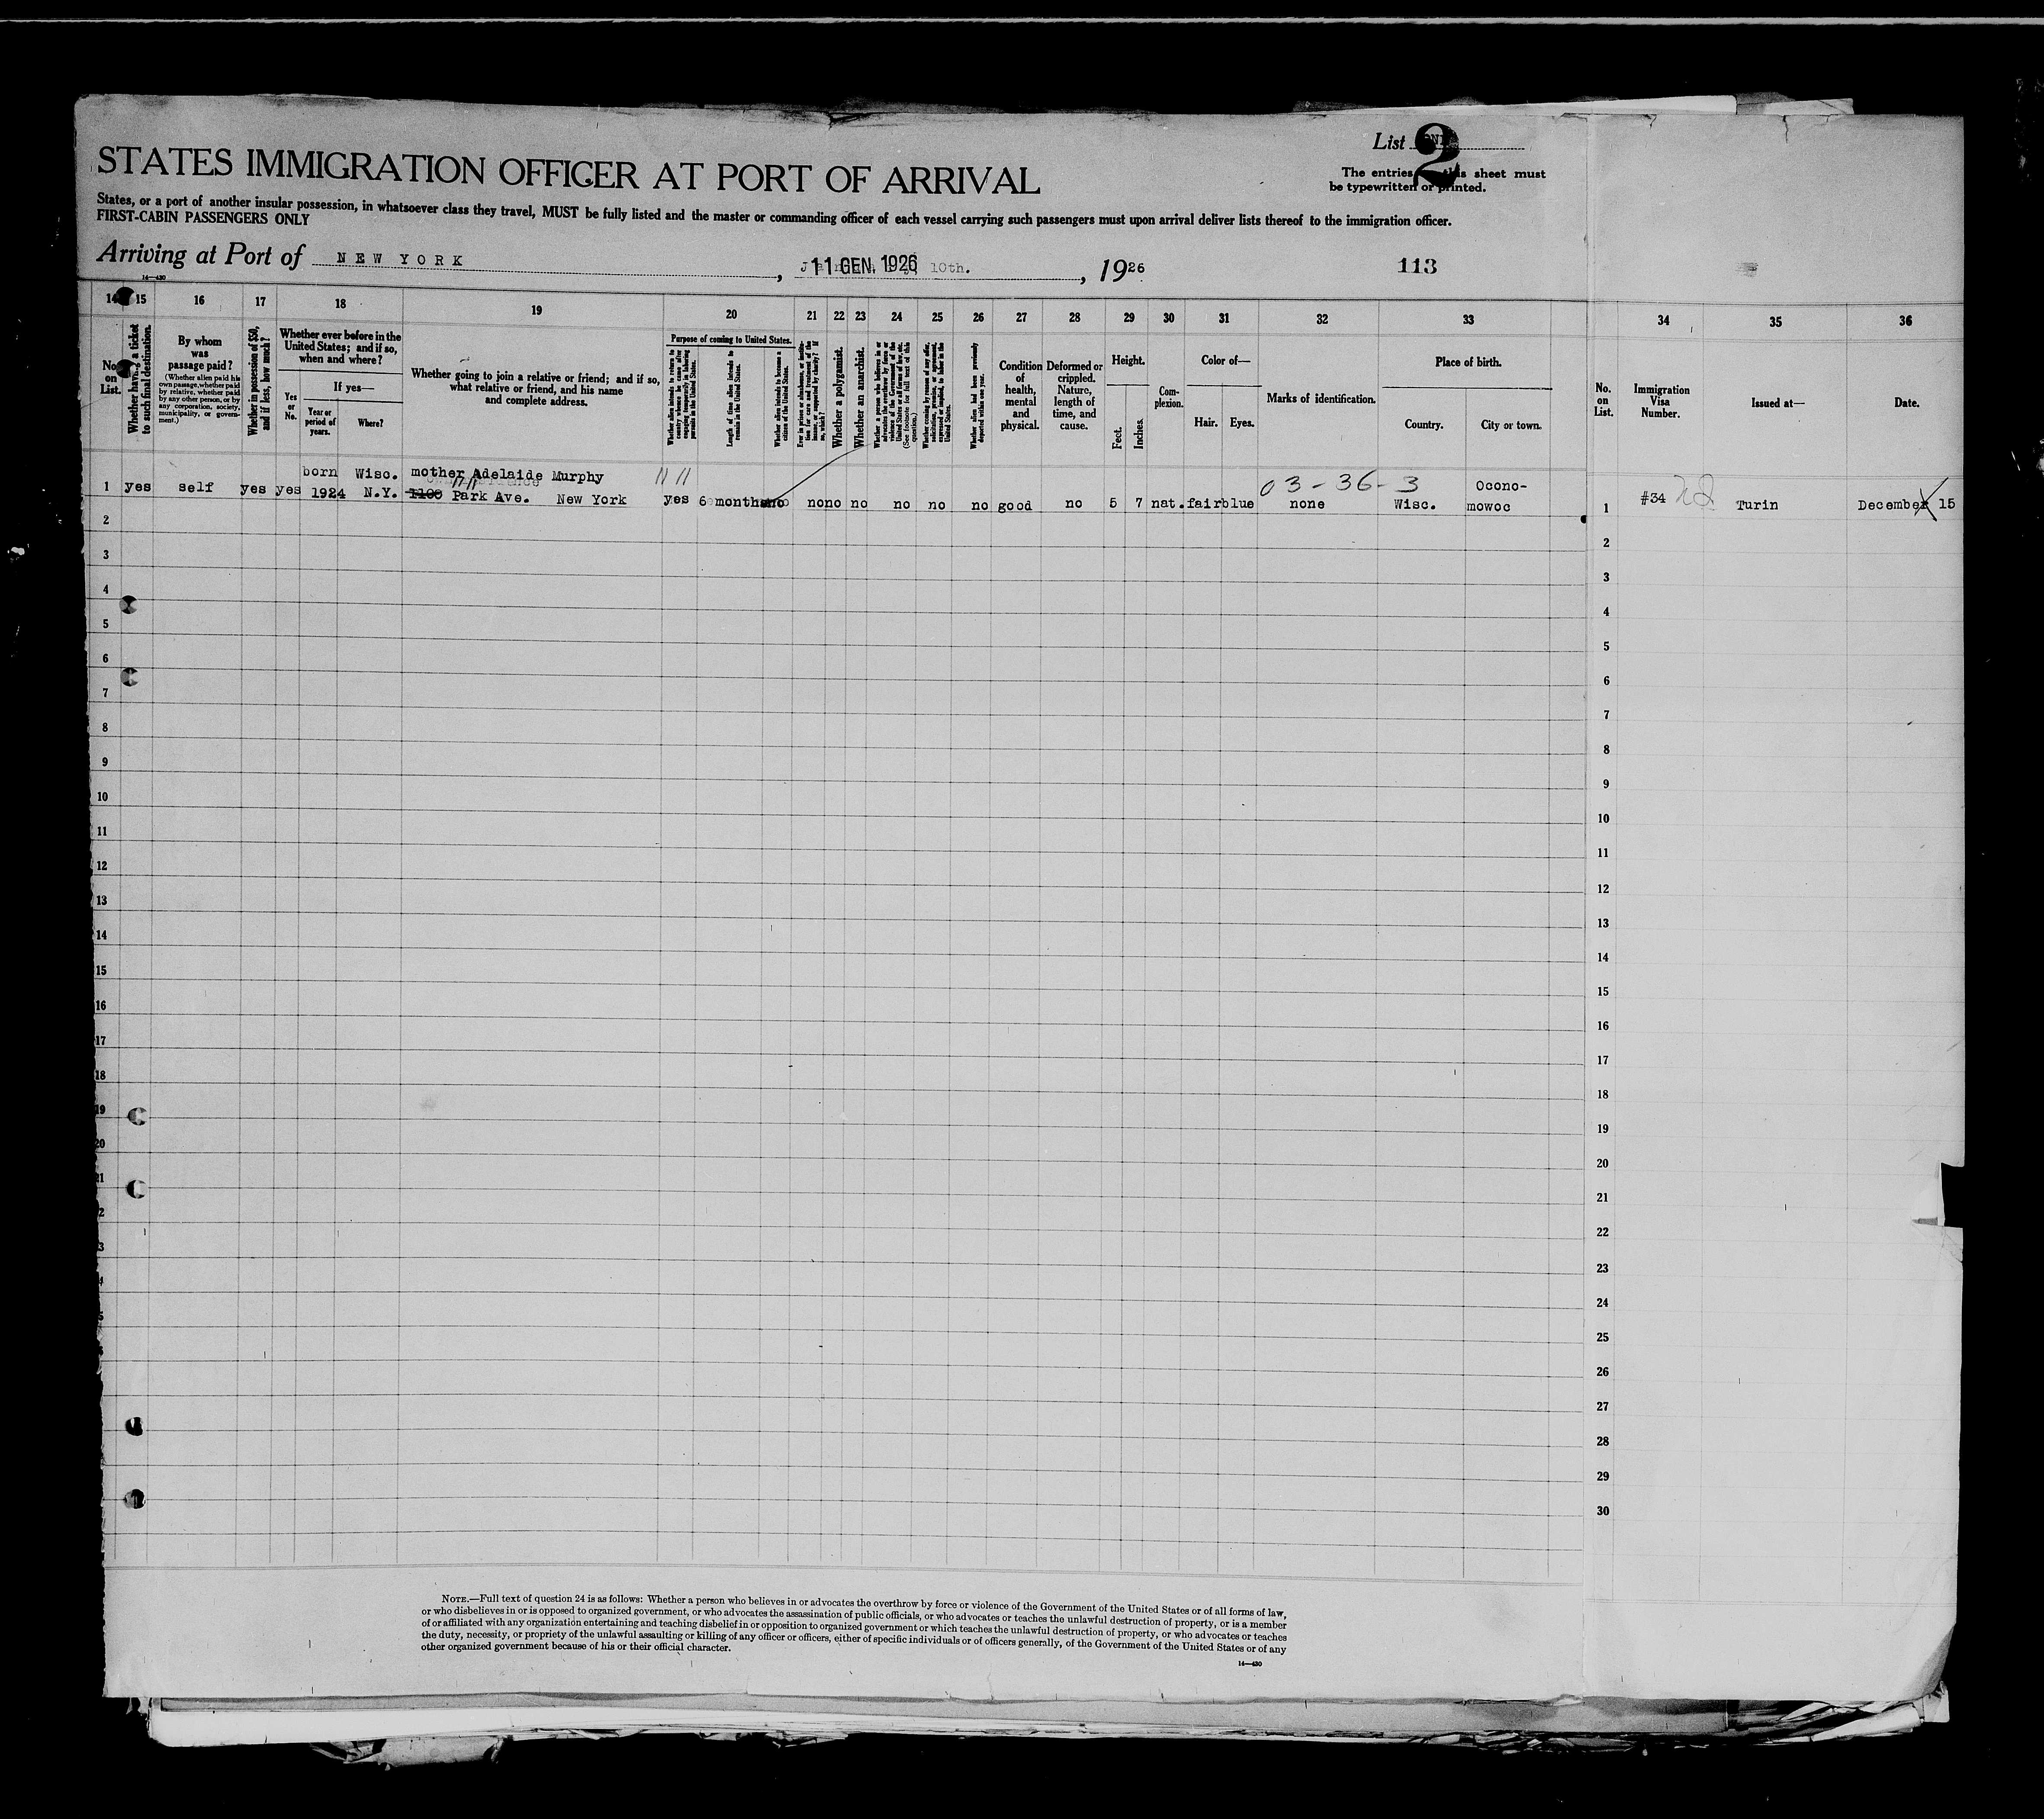 List 2
STATES IMMIGRATION OFFICER AT PORT OF ARRIVAL
The entries this sheet must
be typewritten or printed.
States, or a port of another insular possession, in whatsoever class they travel, MUST be fully listed and the master or commanding officer of each vessel carrying such passengers must upon arrival deliver lists thereof to the immigration officer.
FIRST-CABIN PASSENGERS ONLY
Arriving at Port of NEW YORK, 11 GEN. 1926 10th., 1926
113
14—430
14 15 16 17 18 19 20 21 22 23 24 25 26 27 28 29 30 31 32 33 34 35 36
No. on List.
Whether having a ticket to such final destination.
By whom was passage paid?
(Whether alien paid his own passage, whether paid by relative, whether paid by any other person, or by any corporation, society, municipality, or government.)
Whether in possession of $50, and if less, how much?
Whether ever before in the United States; and if so, when and where?
Yes or No.
If yes—
Year or period of years.
Where?
Whether going to join a relative or friend; and if so, what relative or friend, and his name and complete address.
Purpose of coming to United States.
Whether alien intends to return to country whence he came after engaging temporarily in laboring pursuits in the United States.
Length of time alien intends to remain in the United States.
Whether alien intends to become a citizen of the United States.
Ever in prison or almshouse, or institution for care and treatment of the insane, or supported by charity? If so, which?
Whether a polygamist.
Whether an anarchist.
Whether a person who believes in or advocates the overthrow by force or violence of the Government of the United States or all forms of law, etc. (See footnote for full text of this question.)
Whether coming by reason of any offer, solicitation, promise, or agreement, expressed or implied, to labor in the United States.
Whether alien had been previously deported within one year.
Condition of health, mental and physical.
Deformed or crippled. Nature, length of time, and cause.
Height.
Feet.
Inches.
Complexion.
Color of—
Hair.
Eyes.
Marks of identification.
Place of birth.
Country.
City or town.
No. on List.
Immigration Visa Number.
Issued at—
Date.
born Wisc. mother Adelaide Murphy 03-36-3 Ocono-
1 yes self yes yes 1924 N.Y. 1100 Park Ave. New York yes 6 months no no no no no no no good no 5 7 nat. fair blue none Wisc. mowoc 1 #34 Turin December 15
2 2
3 3
4 4
5 5
6 6
7 7
8 8
9 9
10 10
11 11
12 12
13 13
14 14
15 15
16 16
17 17
18 18
19 19
20 20
21 21
2 22
3 23
4 24
5 25
26
27
28
29
30
NOTE.—Full text of question 24 is as follows: Whether a person who believes in or advocates the overthrow by force or violence of the Government of the United States or of all forms of law,
or who disbelieves in or is opposed to organized government, or who advocates the assassination of public officials, or who advocates or teaches the unlawful destruction of property, or is a member
of or affiliated with any organization entertaining and teaching disbelief in or opposition to organized government or which teaches the unlawful destruction of property, or who advocates or teaches
the duty, necessity, or propriety of the unlawful assaulting or killing of any officer or officers, either of specific individuals or of officers generally, of the Government of the United States or of any
other organized government because of his or their official character.
14—430